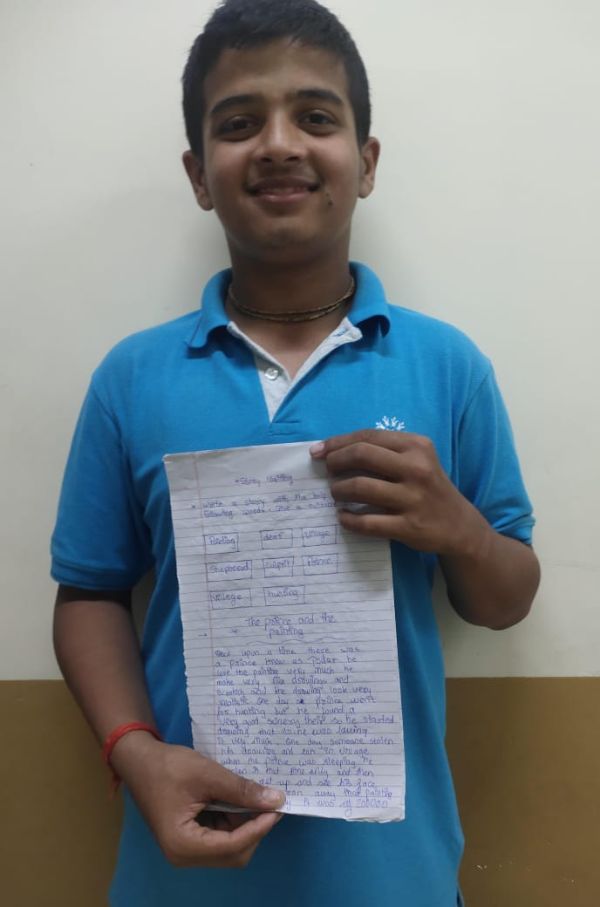 Story Writing
* Write a story with the help
following words. Give a suitable
Painting
deer
Village
Shepherd
Culprit
Prince
Privilege
hunting
→ * The prince and the
painting
Once upon a time there was
a prince know as he
love the painting very much he
make very nice drawings and
scratch and the drawing look very
realistic one day prince went
for hunting but he found a
very good senery there so he started
drawing that as he was loving
it very much. One day someone stolen
his drawing and ran in village
when the prince was sleeping he
that time only and then
get up and see his face
away that painting
it was of